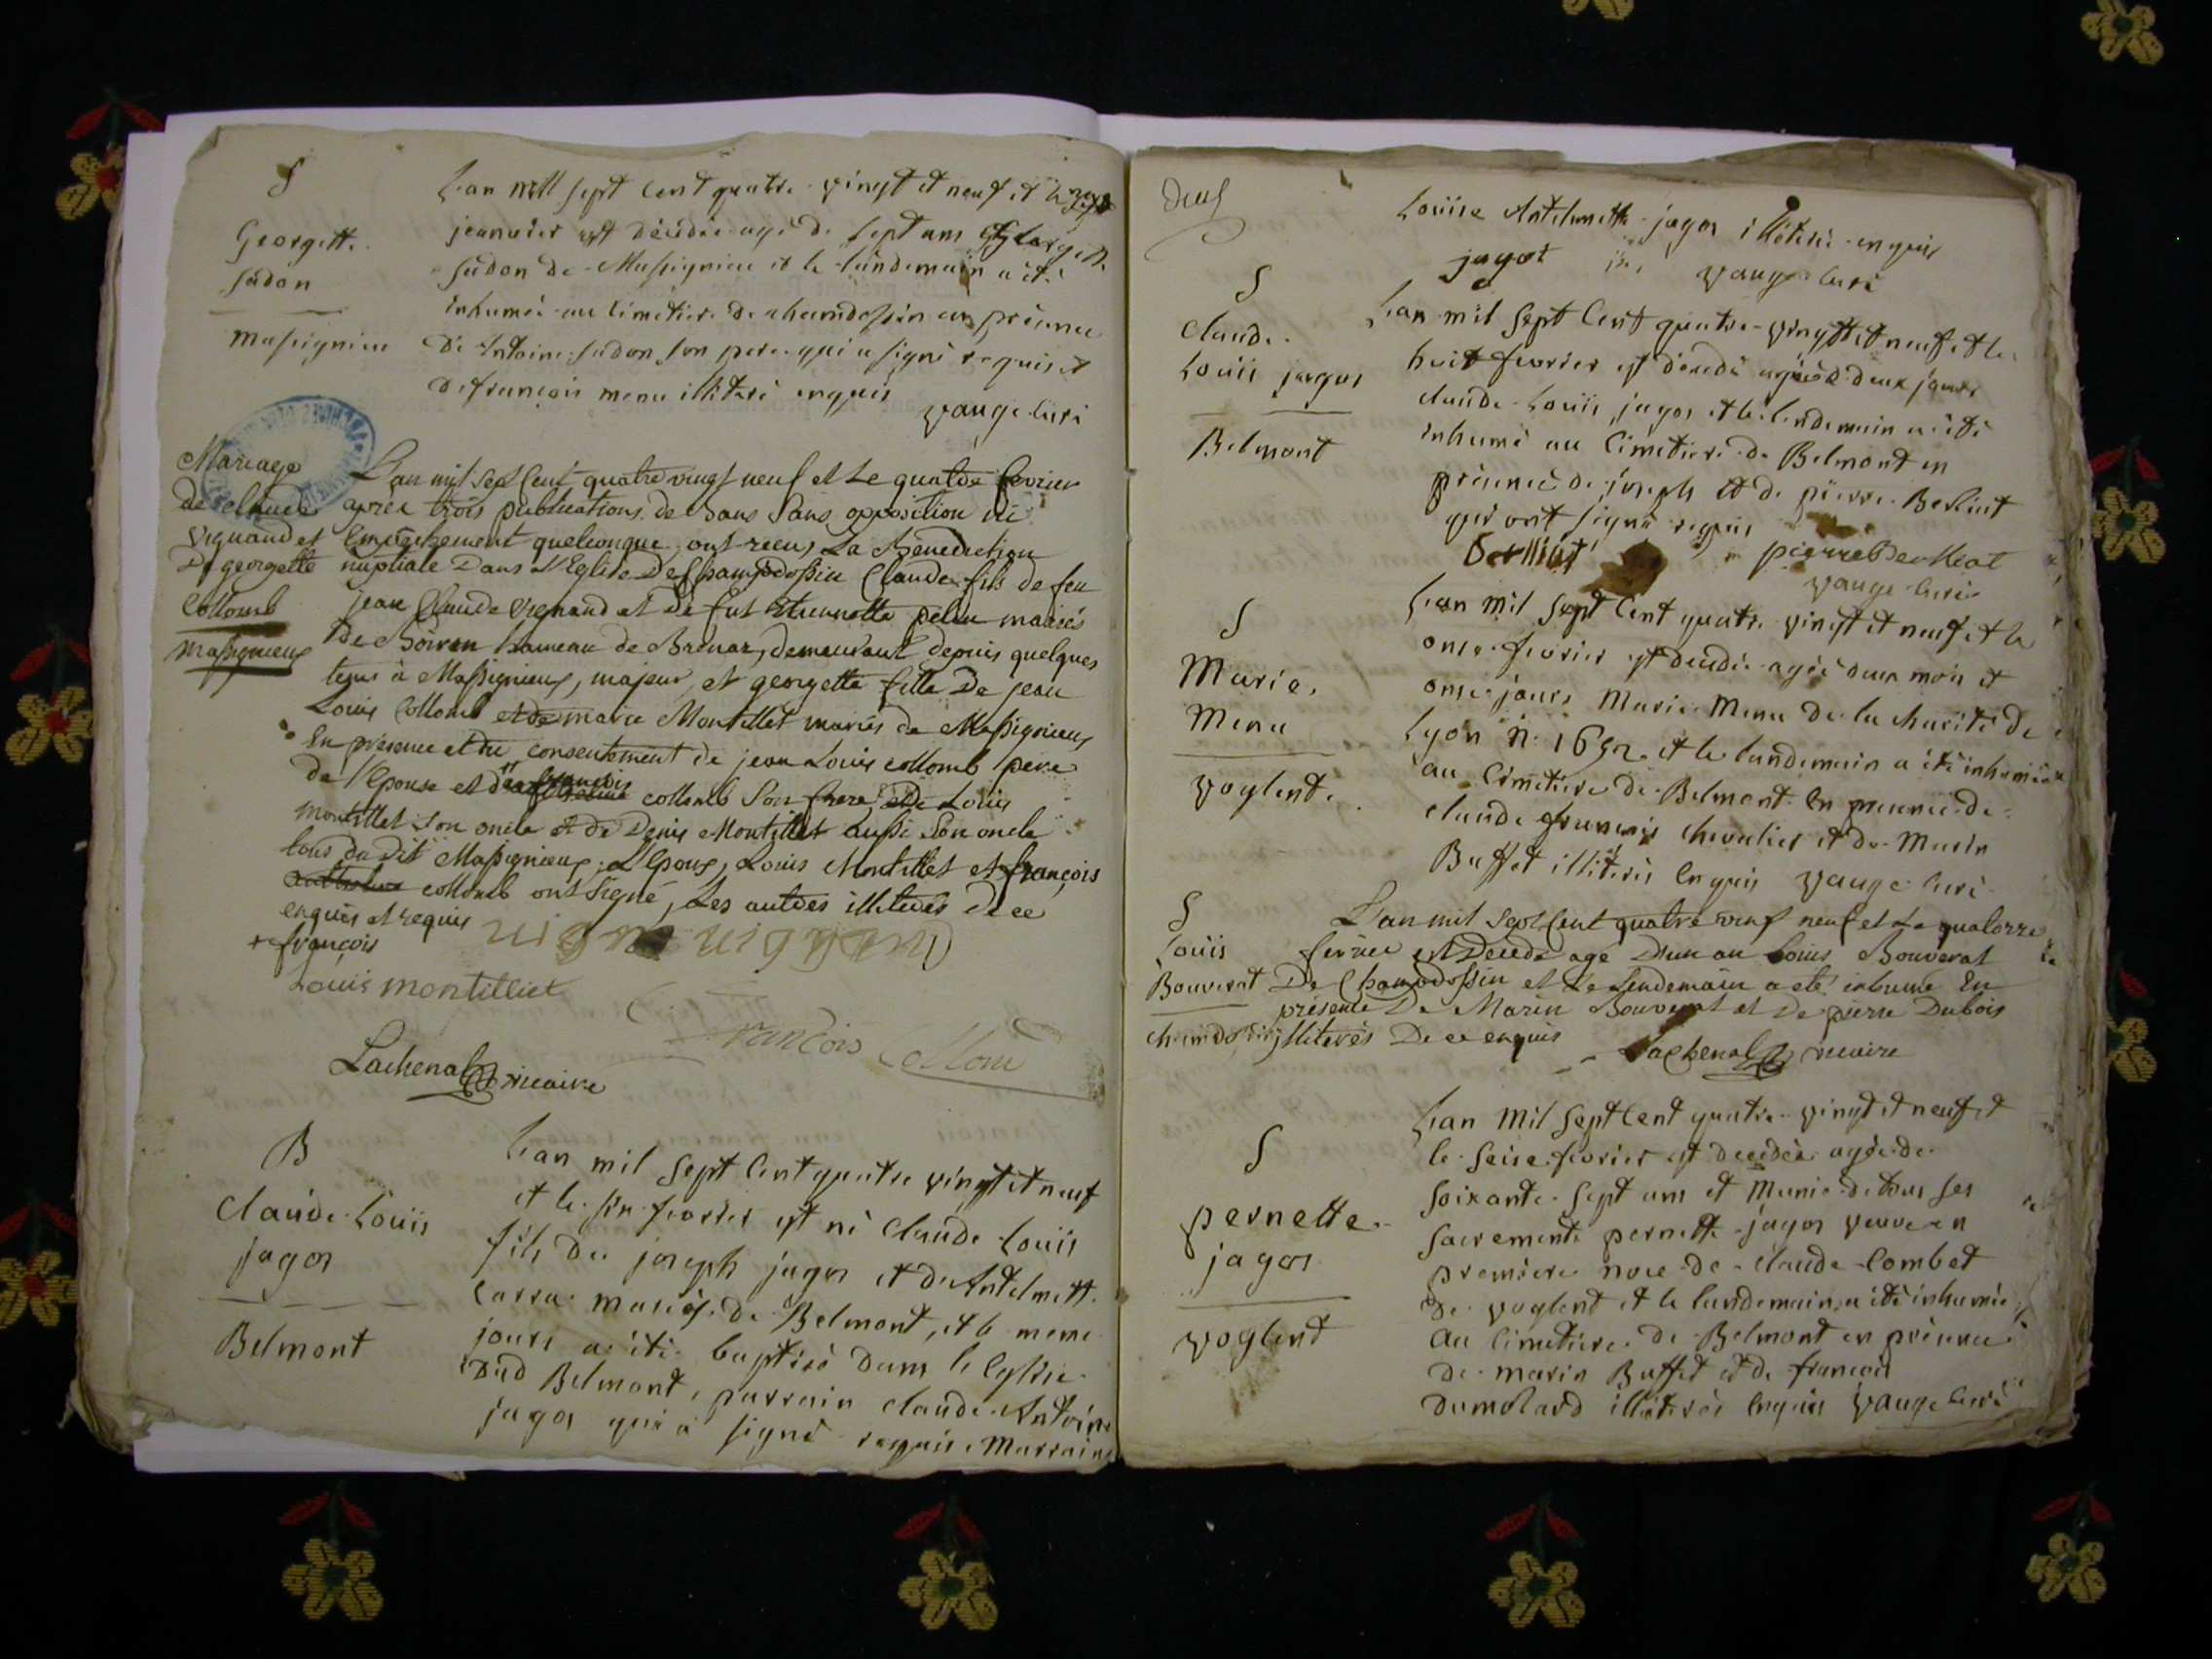 S
Georgette
sudon
massignieu
Lan mil sept cent quatre vingt et neuf et le
jeanvier est décédée agée de sept ans Georgette
sudon de Massignieu et le landemain a été
inhumée au cimetiere de chamdossin en présence
de Antoine sudon son pere qui a signé requis et
de françois menu illiteré enquis
vauge curé
Mariage
de claude
vignand et
De georgette
Collomb
massignieux
L'an mil sept Cent quatre vingt neuf et Le quatre fevrier
après trois publications de bans sans opposition ni
Empêchement quelconque, ont reçu La Benediction
nuptiale Dans L'Eglise De Champdossin Claude fils de feu
jean Claude vignand et de fut Etiennette pelen mariés
de Boiron hameau de Brenaz, demeurant depuis quelques
tems à Massignieux, majeur, et georgette fille De jean
Louis Collomb et de marie Montillet mariés de Massignieux
En présence et du consentement de jean Louis collomb pere
de l'Epouse et de françois collomb son frere, de Louis
montillet son oncle et de Denis Montillet aussi son oncle
tous du dit Massignieux. L'Epoux, Louis Montillet et françois
collomb ont signé, Les autres illiterés de ce
enquis et requis
+ françois
Louis montilliet
françois collom
Lachenal vicaire
B
Claude Louis
jagos
Belmont
Lan mil sept cent quatre vingt et neuf
et le six fevrier est né claude Louis
fils de joseph jagos et d'Antelmette
Carra mariés de Belmont, et le meme
jours a été baptisé dans leglise
dud Belmont, parrain claude Antoine
jagos qui a signé requis, Marraine
deux
Louise Antelmette jagos illiterée enquis
jagot
vauge curé
S
Claude
Louis jagos
Belmont
Lan mil sept cent quatre vingtt et neuf et le
huit fevrier est décédé agé de deux jours
claude Louis jagos et le lendemain a été
inhumé au Cimetiere de Belmont en
présence de joseph et de pierre Berliat
qui ont signé requis
berlliat
pierre berlleat
vauge curé
S
Marie
Menu
voglent
Lan mil sept cent quatre vingt et neuf et le
onse fevrier est décédée agée deux mois et
onse jours Marie Menu de la charité de
Lyon n. 1652 et le landemain a été inhumée
au Cimetiere de Belmont en présence de
claude françois chevalier et de Marin
Buffet illiterés Enquis vauge curé
S
Louis
Bouverat
chamdossin
L'an mil sept Cent quatre vingt neuf et Le quatorze
fevrier est Decedé agé D'un an Louis Bouverat
De Champdossin et Le Lendemain a eté inhumé En
présence De Marin Bouverat et De pierre Dubois
illiterés De ce enquis
Lachenal vicaire
S
pernette
jagos
voglent
Lan mil sept cent quatre vingt et neuf et
le seise fevrier est decedée agée de
soixante sept ans et Munie de tous ses
sacrements pernette jagos veuve en
premiere noce de claude Combet
de voglent et le landemain a été inhumée
au Cimetiere de Belmont en présence
de marin Buffet et de francois
dumolard illiterés Enquis vauge curé